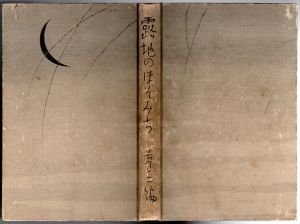 露地のほそみち 第二編